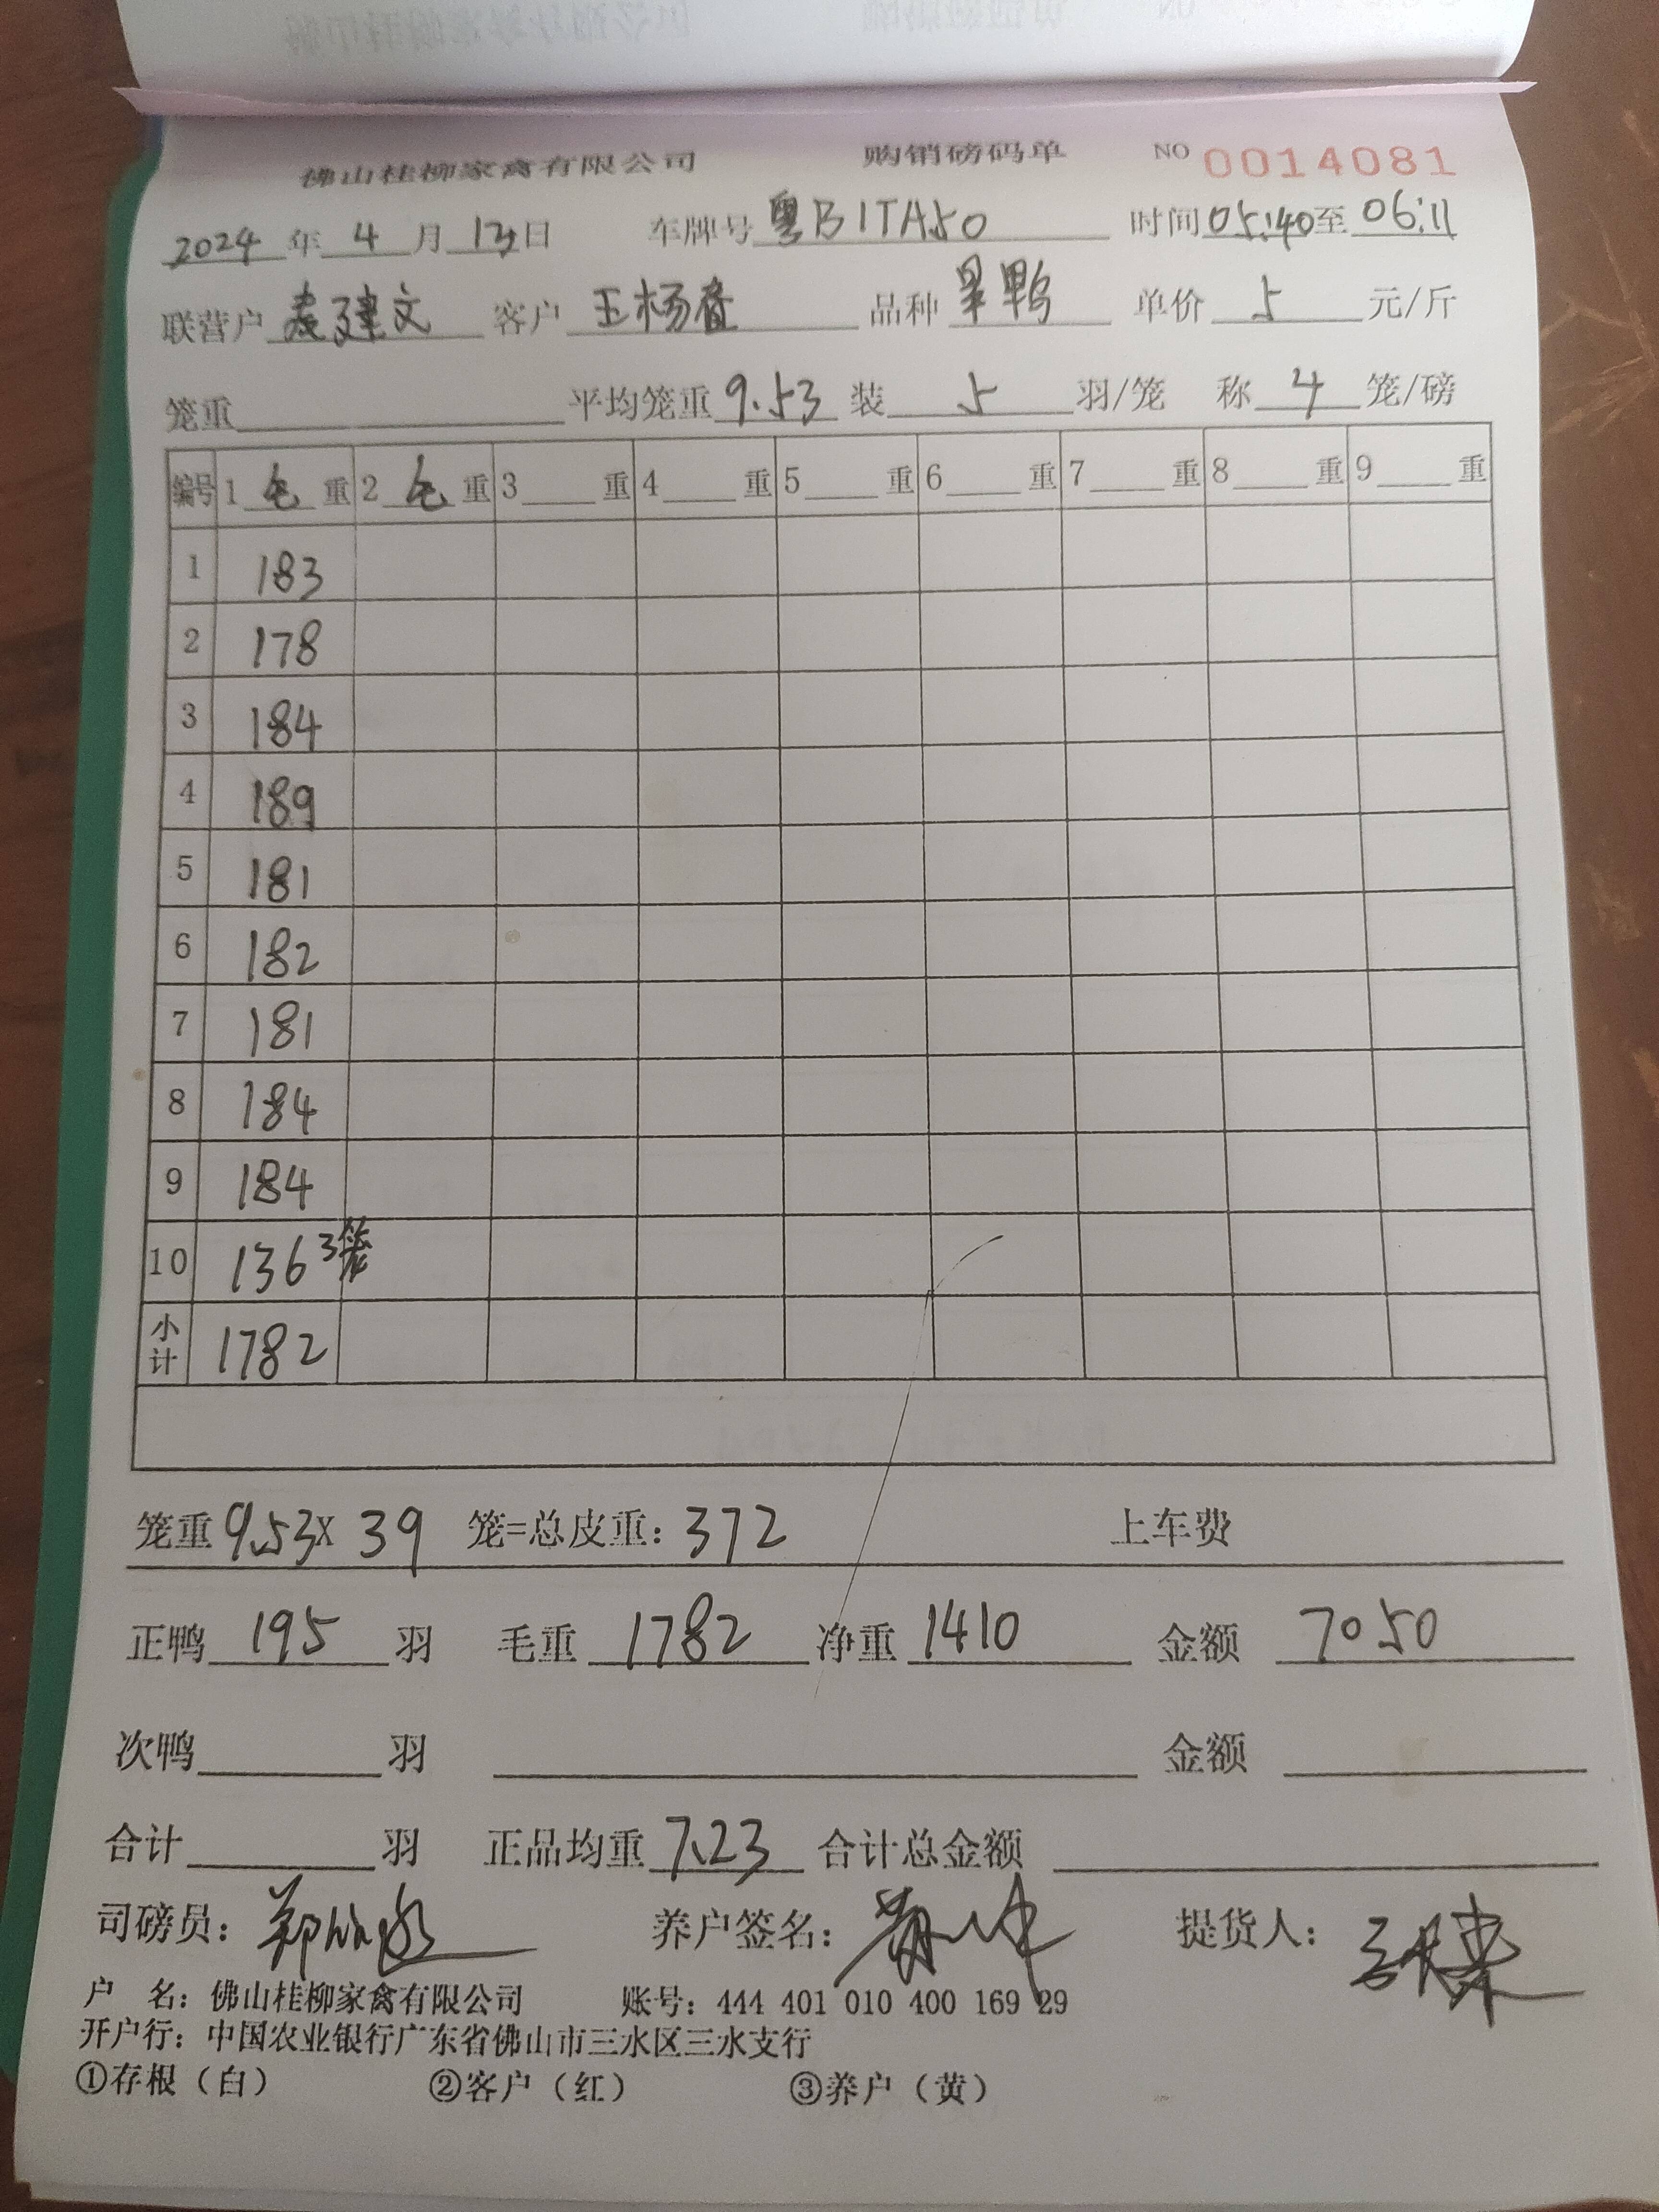 佛山桂柳家禽有限公司 购销磅码单 NO 0014081
2024 年 4 月 13 日 车牌号 粤B1TA50 时间 05:40 至 06:11
联营户 麦建文 客户 王杨 品种 果鸭 单价 5 元/斤
笼重 平均笼重 9.53 装 5 羽/笼 称 4 笼/磅
编号 1 毛 重 2 毛 重 3 重 4 重 5 重 6 重 7 重 8 重 9 重
1 183
2 178
3 184
4 189
5 181
6 182
7 181
8 184
9 184
10 136 3笼
小计 1782
笼重 9.53 X 39 笼=总皮重: 372 上车费
正鸭 195 羽 毛重 1782 净重 1410 金额 7050
次鸭 羽 金额
合计 羽 正品均重 7.23 合计总金额
司磅员: 养户签名: 提货人:
户 名: 佛山桂柳家禽有限公司 账号: 444 401 010 400 169 29
开户行: 中国农业银行广东省佛山市三水区三水支行
①存根（白） ②客户（红） ③养户（黄）